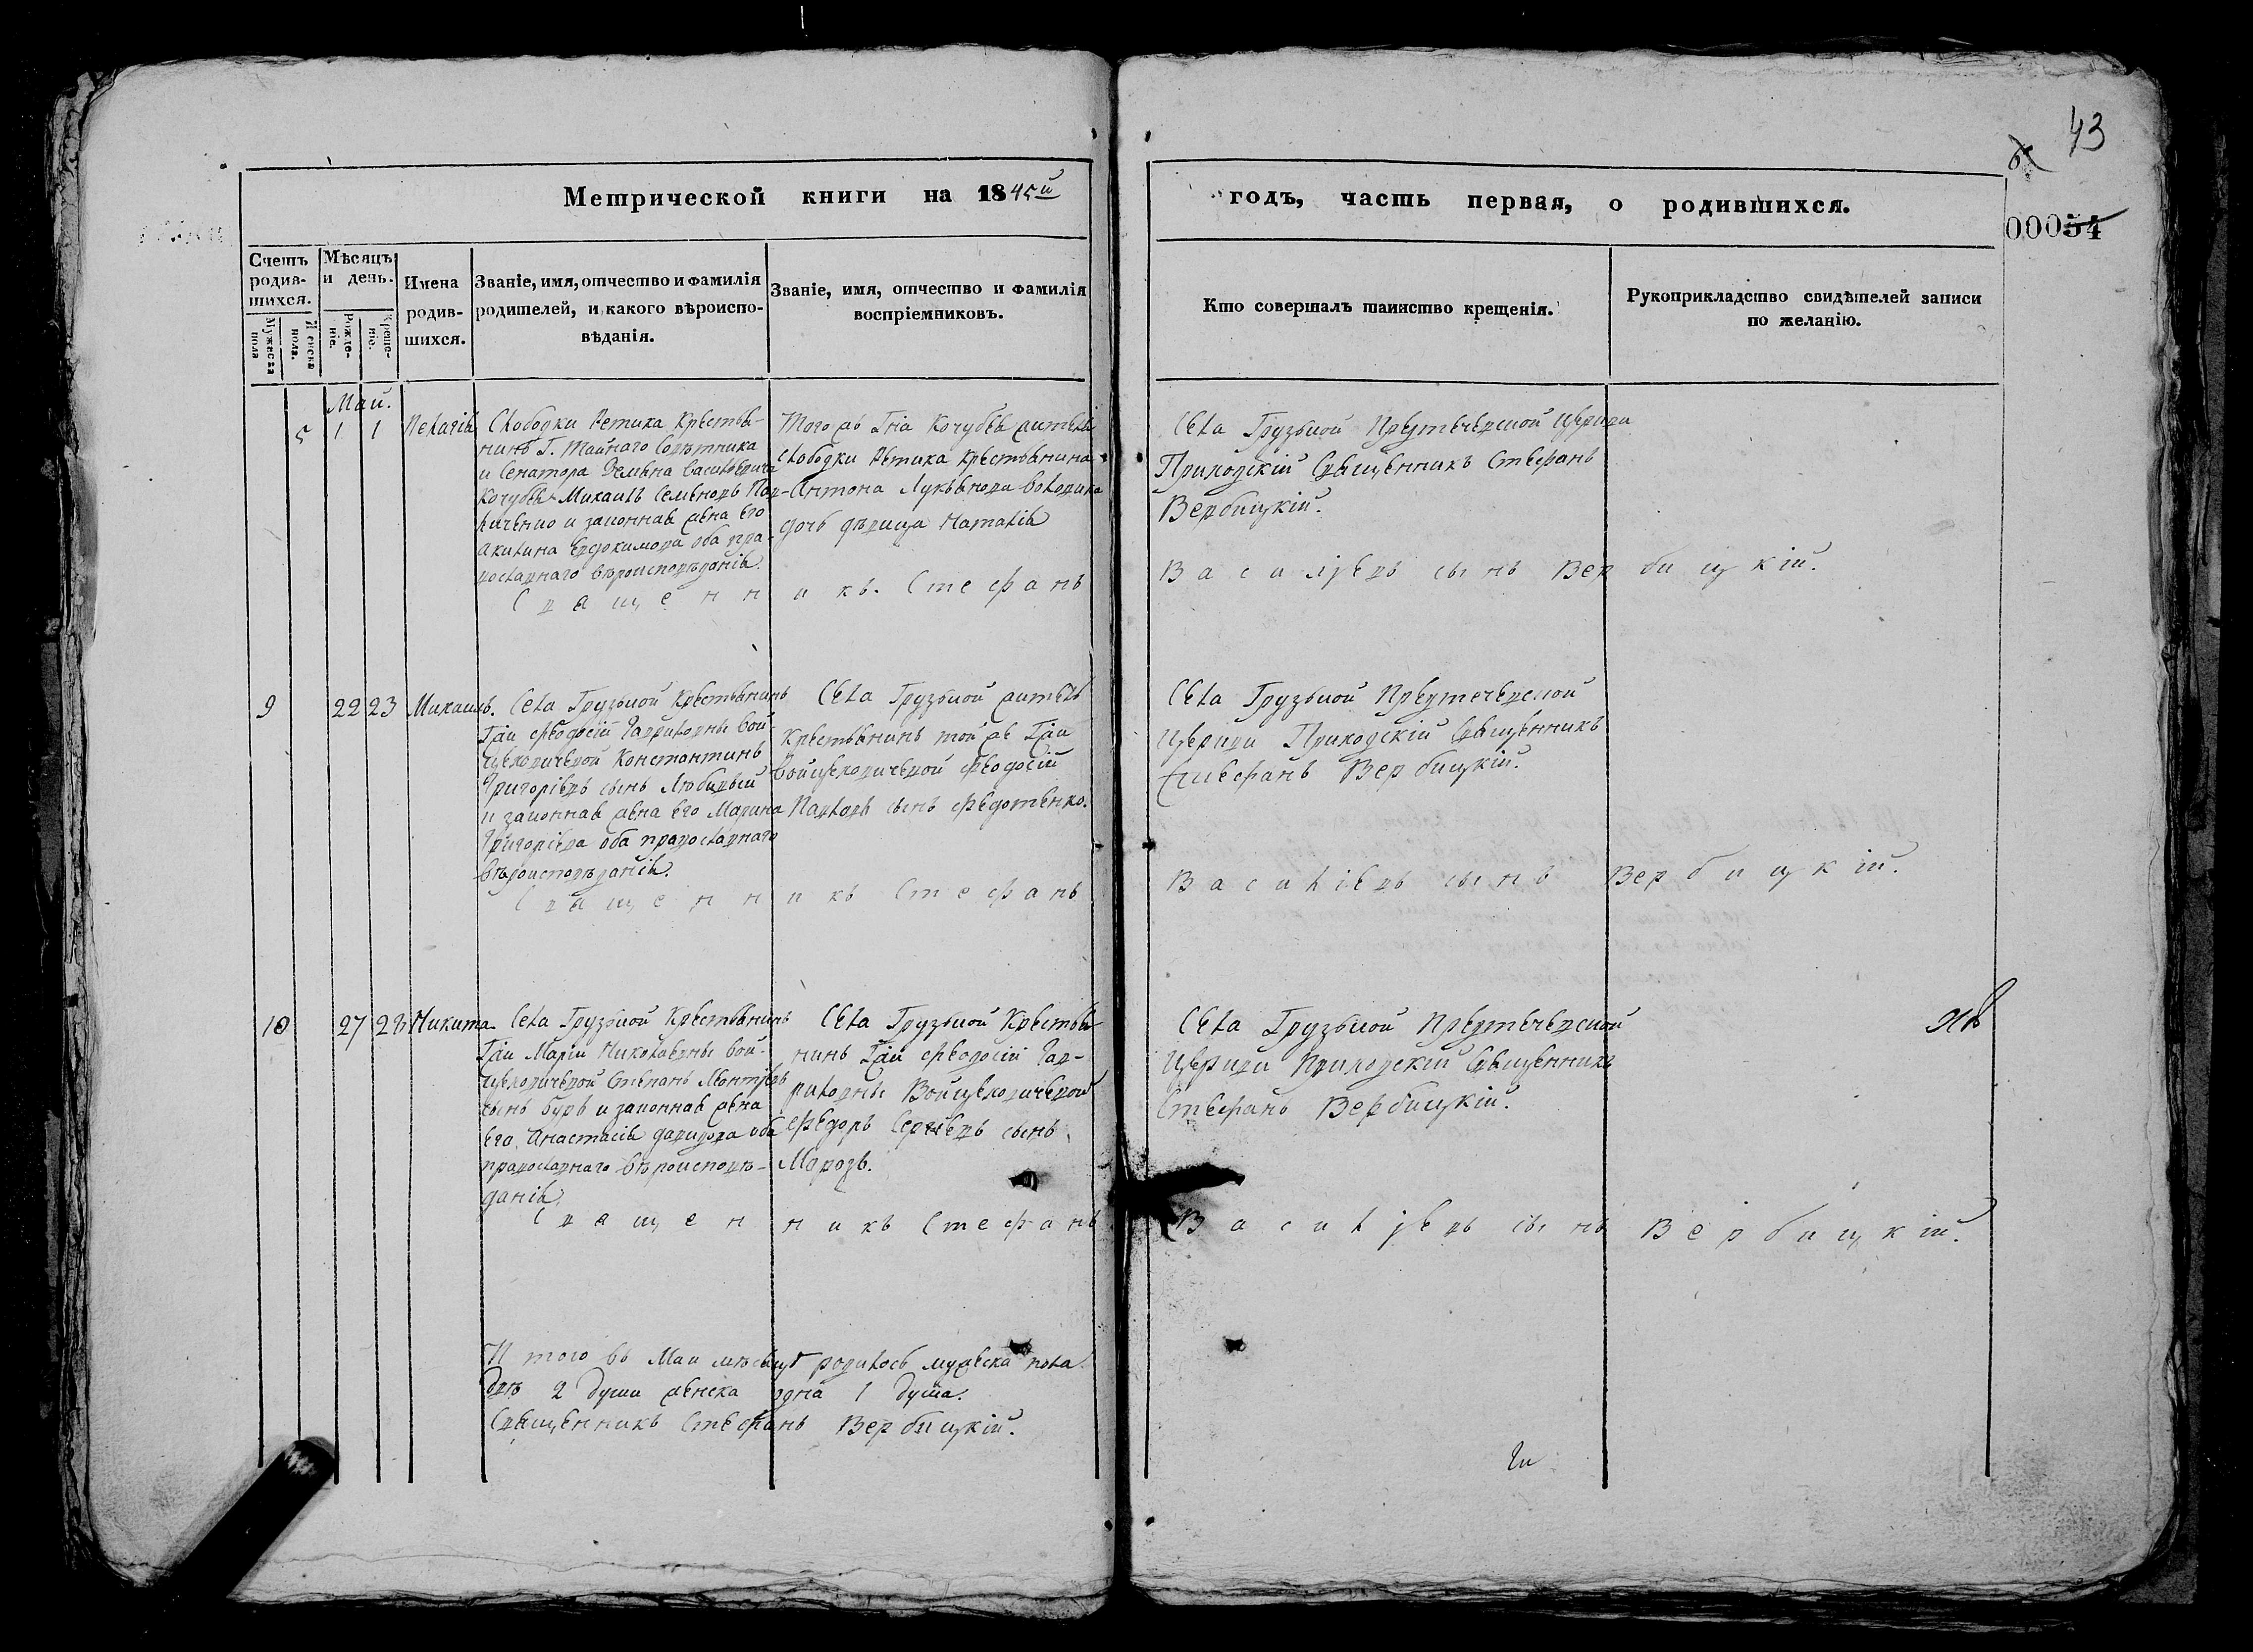 43
6
Метрической книги на 1845й
годъ, часть первая, о родившихся.
00054
Счетъ родив-шихся.
Мужеска пола
Женска пола.
Мѣсяцъ и день.
Рожде-нiе.
Креще-нiе.
Имена родив-шихся.
Званіе, имя, отчество и фамилія
родителей, и какого вѣроиспо-
вѣданія.
Званіе, имя, отчество и фамилія
воспріемниковъ.
Кто совершалъ таинство крещенія.
Рукоприкладство свидѣтелей записи
по желанію.
Май.
5 1 1 Пелагія
Слободки Ретика Крестья-
нинъ Г. Тайнаго Совѣтника
и Сенатора Демьяна Васильевича
Кочубея Михаилъ Семеновъ
и законная жена его
Акилина Евдокимова оба пра-
вославнаго вѣроисповѣданія.
Того жъ Гна Кочубея житель
слободки Ретика Крестьянина
Антона Лукьянова
дочь дѣвица Наталія
Села Грузкой Предтечевской Церкви
Приходскій Священникъ Стефанъ
Вербицкій.
Священникъ. Стефанъ Василіевъ сынъ Вербицкій.
9 22 23 Михаилъ.
Села Грузкой Крестьянинъ
Гжи Феодосіи Гавриловны Вой-
цеховичевой Константинъ
Григоріевъ сынъ Любивый
и законная жена его Марина
Григоріева оба православнаго
вѣроисповѣданія.
Села Грузкой житель
Крестьянинъ той же Гжи
Войцеховичевой Феодосій
Павловъ сынъ Федотенко.
Села Грузкой Предтечевской
Церкви Приходскій Священникъ
Стефанъ Вербицкій.
Священникъ Стефанъ Василіевъ сынъ Вербицкій.
10 27 28 Никита
Села Грузкой Крестьянинъ
Гжи Маріи Николаевны Вой-
цеховичевой Степанъ Леонтіевъ
сынъ Буръ и законная жена
его Анастасія Давидова оба
православнаго вѣроисповѣ-
данія.
Села Грузкой Крестья-
нинъ Гжи Феодосіи Гав-
риловны Войцеховичевой
Федоръ Сергѣевъ сынъ
Морозъ.
Села Грузкой Предтечевской
Церкви Приходскій Священникъ
Стефанъ Вербицкій.
Священникъ Стефанъ Василіевъ сынъ Вербицкій.
Итого въ Маи мѣсяцѣ родилось мужеска пола
двѣ 2 души женска одна 1 душа.
Священникъ Стефанъ Вербицкій.